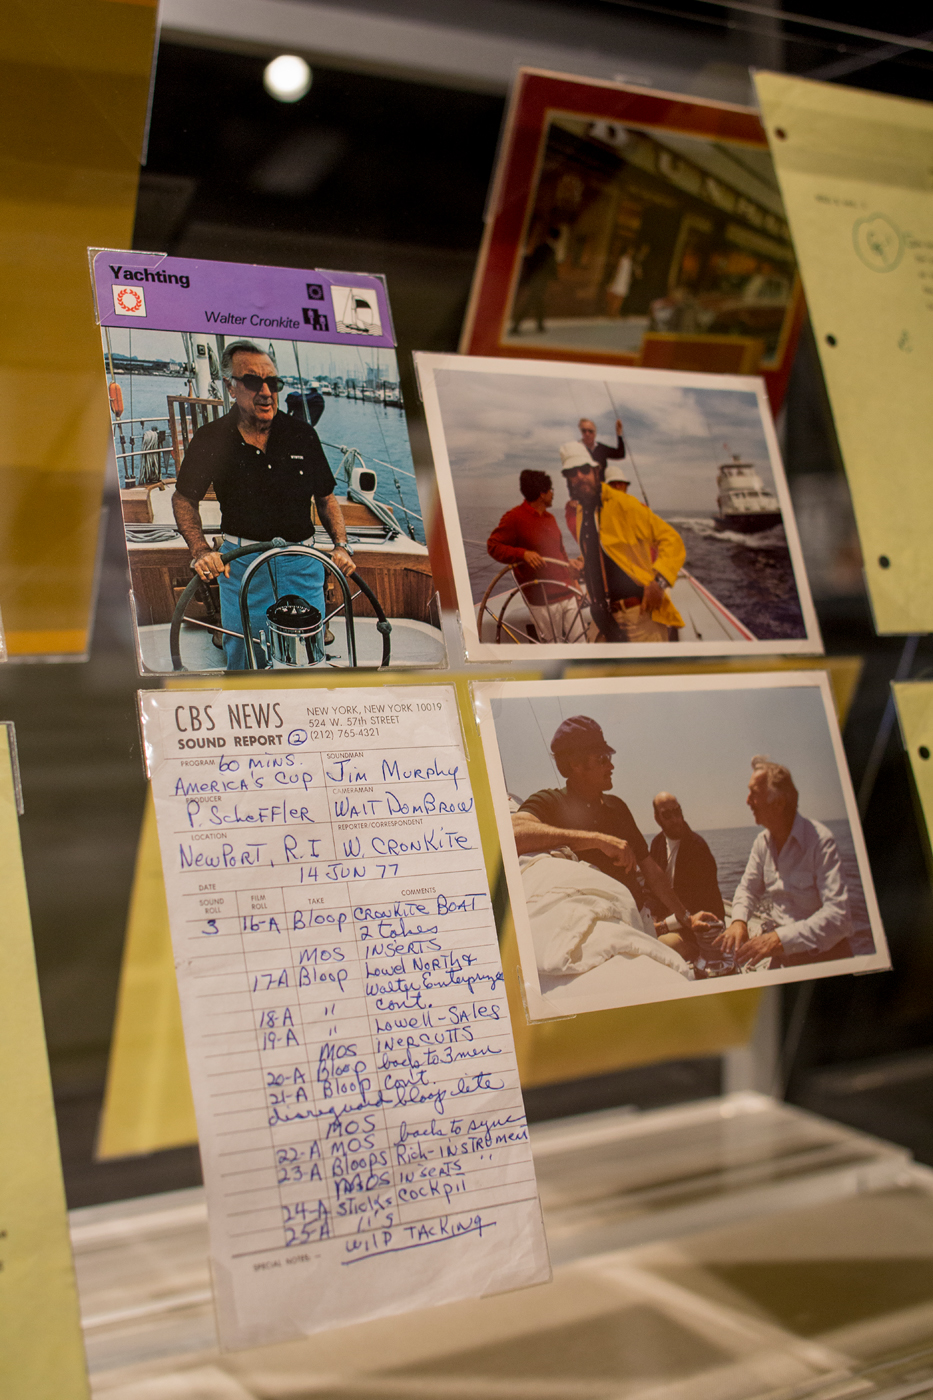 Yachting
Walter Cronkite
CBS NEWS
SOUND REPORT 2
NEW YORK, NEW YORK 10019
524 W. 57th STREET
(212) 765-4321
PROGRAM 60 MINS.
AMERICA'S CUP
SOUNDMAN
Jim Murphy
PRODUCER
P. Scheffler
CAMERAMAN
WALT DOMBROW
LOCATION
NEWPORT, R.I
REPORTER/CORRESPONDENT
W. CRONKITE
14 JUN 77
DATE
SOUND ROLL FILM ROLL TAKE COMMENTS
3 16-A Bloop CRONKITE BOAT
2 takes
MOS INSERTS
17-A Bloop Lowel North &
Walter Enterprize
cont.
18-A "
19-A " Lowell-Sales
MOS INERCUTTS
20-A Bloop back to 3 men
21-A Bloop Cont.
disreguard bloop lite
MOS
22-A MOS back to sync
23-A Bloops Rich-INSTRUMENT
MOS INSERTS "
24-A Sticks COCKPIT
25-A 11's
WILD TACKING
SPECIAL NOTES: -